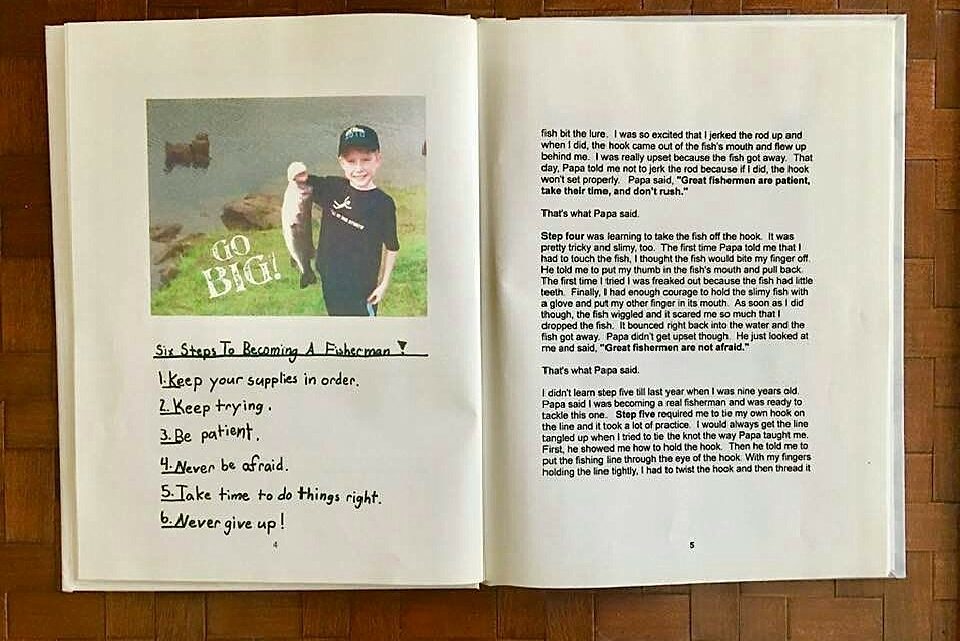 GO
BIG!
Six Steps To Becoming A Fisherman!
1. Keep your supplies in order.
2. Keep trying.
3. Be patient.
4. Never be afraid.
5. Take time to do things right.
6. Never give up!
4
fish bit the lure. I was so excited that I jerked the rod up and
when I did, the hook came out of the fish's mouth and flew up
behind me. I was really upset because the fish got away. That
day, Papa told me not to jerk the rod because if I did, the hook
won't set properly. Papa said, "Great fishermen are patient,
take their time, and don't rush."
That's what Papa said.
Step four was learning to take the fish off the hook. It was
pretty tricky and slimy, too. The first time Papa told me that I
had to touch the fish, I thought the fish would bite my finger off.
He told me to put my thumb in the fish's mouth and pull back.
The first time I tried I was freaked out because the fish had little
teeth. Finally, I had enough courage to hold the slimy fish with
a glove and put my other finger in its mouth. As soon as I did
though, the fish wiggled and it scared me so much that I
dropped the fish. It bounced right back into the water and the
fish got away. Papa didn't get upset though. He just looked at
me and said, "Great fishermen are not afraid."
That's what Papa said.
I didn't learn step five till last year when I was nine years old.
Papa said I was becoming a real fisherman and was ready to
tackle this one. Step five required me to tie my own hook on
the line and it took a lot of practice. I would always get the line
tangled up when I tried to tie the knot the way Papa taught me.
First, he showed me how to hold the hook. Then he told me to
put the fishing line through the eye of the hook. With my fingers
holding the line tightly, I had to twist the hook and then thread it
5